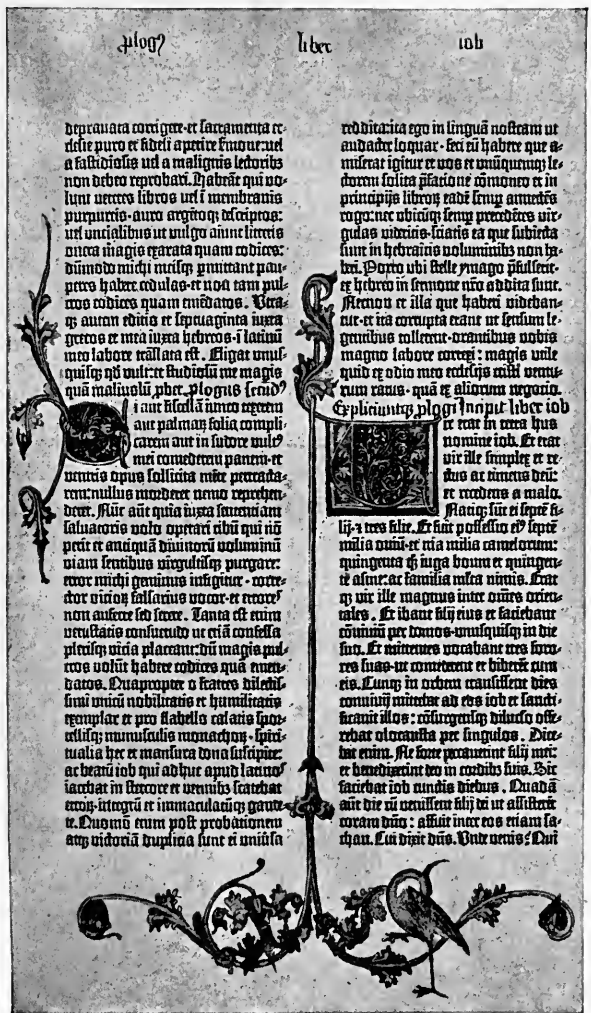 plog9 liber iob
deprauata corrigere·et sacramenta ec-
clesie puro et fideli aperire s̃mone:uel
a fastidiosis uel a malignis lectoribus
non debeo reprobari. Habeãt qui vo-
lunt veteres libros uel ĩ membranis
purpureis·auro argẽtoqꝫ descriptos:
uel uncialibus ut uulgo aiunt litteris
onera magis exarata quam codices:
dũmodo michi meisqꝫ ꝑmittant pau-
peres habere cedulas·et non tam pul-
cros codices quam emẽdatos. Vtra-
qꝫ autem editio et septuaginta iuxta
grecos et mea iuxta hebreos·ĩ latinũ
meo labore trãslata est. Eligat unus-
quisqꝫ qd̃ vult:et studiosũ me magis
quã maliuolũ ꝓbet. Plogus secũd9
Si aut fiscellã iunco texerem
aut palmarꝝ folia compli-
carem aut in sudore vult9
mei comederem panem·et
ventris opus sollicita mẽte pertracta-
rem:nullus morderet nemo reprehen-
deret. Nũc aũt quia iuxta sententiam
saluatoris volo operari cibũ qui nõ
perit et antiquã diuinorũ voluminũ
uiam sentibus virgultisqꝫ purgare:
error michi geminus infigitur·corre-
ctor vicioꝝ falsarius vocor·et errores
non auferre sed serere. Tanta est enim
vetustatis consuetudo ut etiã confessa
plerisqꝫ vicia placeant:dũ magis pul-
cros volũt habere codices quã emen-
datos. Quapropter o fratres dilectis-
simi unicũ nobilitatis et humilitatis
exemplar et pro flabello calatis spor-
tellisqꝫ munusculis monachoꝝ·spiri-
tualia hec et mansura dona suscipite:
ac beatũ iob qui adhuc apud latinos
iacebat in stercore et vermibus scatebat
erroꝝ·integrũ et immaculatũ gaude-
te. Quomõ enim post probationem
atqꝫ victoriã duplicia sunt ei uniuersa
reddita:ita ego in linguã nostram ut
audacter loquar·feci eũ habere que a-
miserat igitur et vos et unũquemqꝫ le-
ctorem solita p̃fatione cõmoneo et in
principijs librorꝝ eadẽ semꝑ annectẽs
rogo:nec ubicũqꝫ semꝑ precedẽtes vir-
gulas videritis·sciatis ea que subiecta
sunt in hebraicis voluminibꝫ non ha-
beri. Porro ubi stelle ymago p̃fulserit·
ex hebreo in sermone nr̃o addita sunt.
Necnon et illa que haberi videban-
tur·et ita corrupta erant ut sensum le-
gentibus tollerent·orantibus vobis
magno labore correxi: magis utile
quid ex ocio meo ecclesijs cristi ventu-
rum ratus·quã ex aliorum negocio.
Expliciuntqꝫ plogi Incipit liber iob
Vir erat in terra hus
nomine iob. Et erat
vir ille simplex et re-
ctus ac timens deũ:
et recedens a malo.
Natiqꝫ sũt ei septẽ fi-
lij·⁊ tres filie. Et fuit possessio eꝰ septẽ
milia ouiũ·et tria milia camelorum:
quingenta qꝫ iuga boum et quingen-
te asine:ac familia mlta nimis. Erat
qꝫ vir ille magnus inter om̃es orien-
tales. Et ibant filij eius et faciebant
cõuiuiũ per domos·unusquisqꝫ in die
suo. Et mittentes vocabant tres soro-
res suas·ut comederent et biberẽt cum
eis. Cunqꝫ in orbem transissent dies
conuiuij mittebat ad eos iob et sancti-
ficauit illos: cõsurgensqꝫ diluculo offe-
rebat olocausta per singulos. Dice-
bat enim. Ne forte peccauerint filij mei:
et benedixerint deo in cordibꝫ suis. Sic
faciebat iob cunctis diebus. Quadã
aũt die cũ venissent filij dei ut assisterẽt
coram dño: affuit inter eos etiam sa-
than. Cui dixit dñs. Vnde venis? Qui